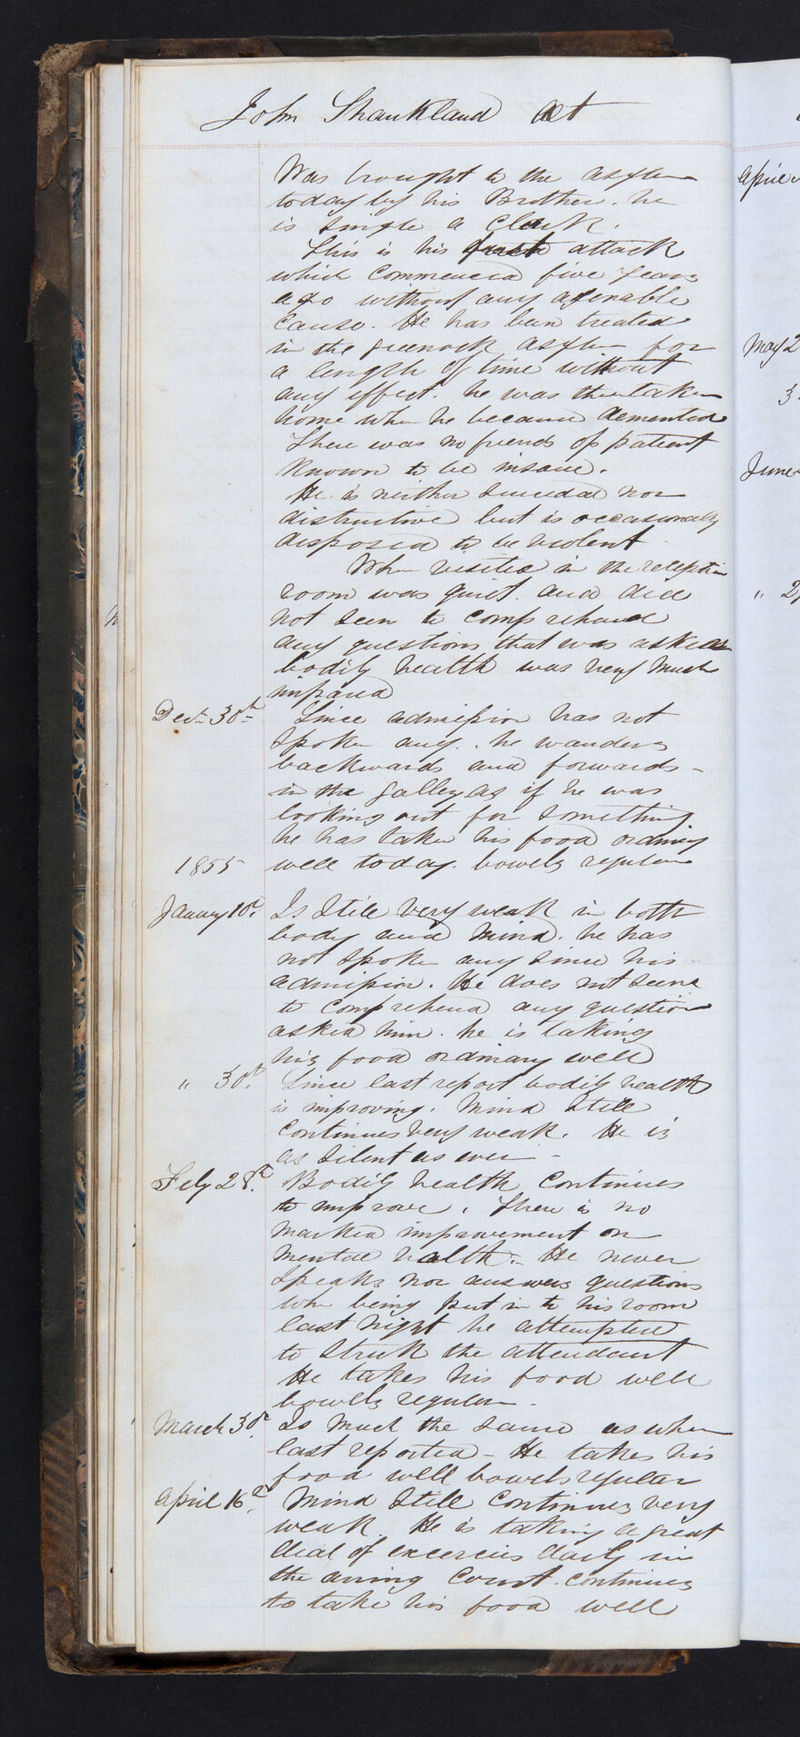 John Shankland Aet
Was brought to the asylum
today by his Brother. he
is single a Clerk.
This is his first attack
which Commenced five years
ago without any assignable
Cause. He has been treated
in the greenock asylum for
a length of time without
any effect. he was then taken
home when he became demented
There was no friends of patient
Known to be insane.
He is neither Suicidal nor
distructive but is occasionally
disposed to be violent
When visited in the reception
room was quiet. and did
not seem to comprehend
any questions that was asked
bodily health was very much
impared
Decr 30th Since admission has not
spoke any. he wanders
backwards and forwards
in the galley as if he was
looking out for something
he has taken his food ordinary
1855 well today. bowels regular
January 10th Is Still very weak in both
body and mind. he has
not spoke any since his
admission. He does not seem
to comprehend any question
asked him. he is taking
his food ordinary well
" 30th Since last report bodily health
is improving. Mind Still
Continues very weak. He is
as silent as ever
Feby 28th Bodily health Continues
to improve. There is no
marked improvement on
mental health. He never
speaks nor answers questions
when being put in to his room
last night he attempted
to struk the attendant
He takes his food well
bowels regular
March 30th Is much the same as when
last reported - He takes his
food well bowels regular
April 16th Mind Still Continues very
weak. He is taking a great
deal of excercies daily in
the airing Court. continues
to take his food well
April
May 2
3
June
" 2